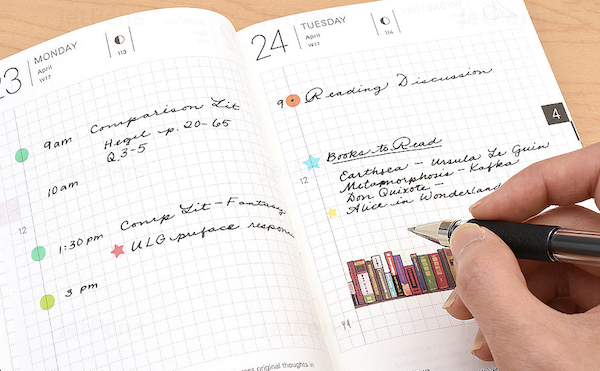 23
MONDAY
April
W17
113
9am Comparison Lit
Hegel - p. 20-65
Q.3-5
10am
12
1:30 pm Comp Lit - Fantasy
ULG preface respon
3 pm
ess original thoughts in
24
TUESDAY
April
W17
114
9 Reading Discussion
4
Books to Read
12
Earthsea - Ursula Le Guin
Metamorphosis - Kafka
Don Quixote -
Alice in Wonderland